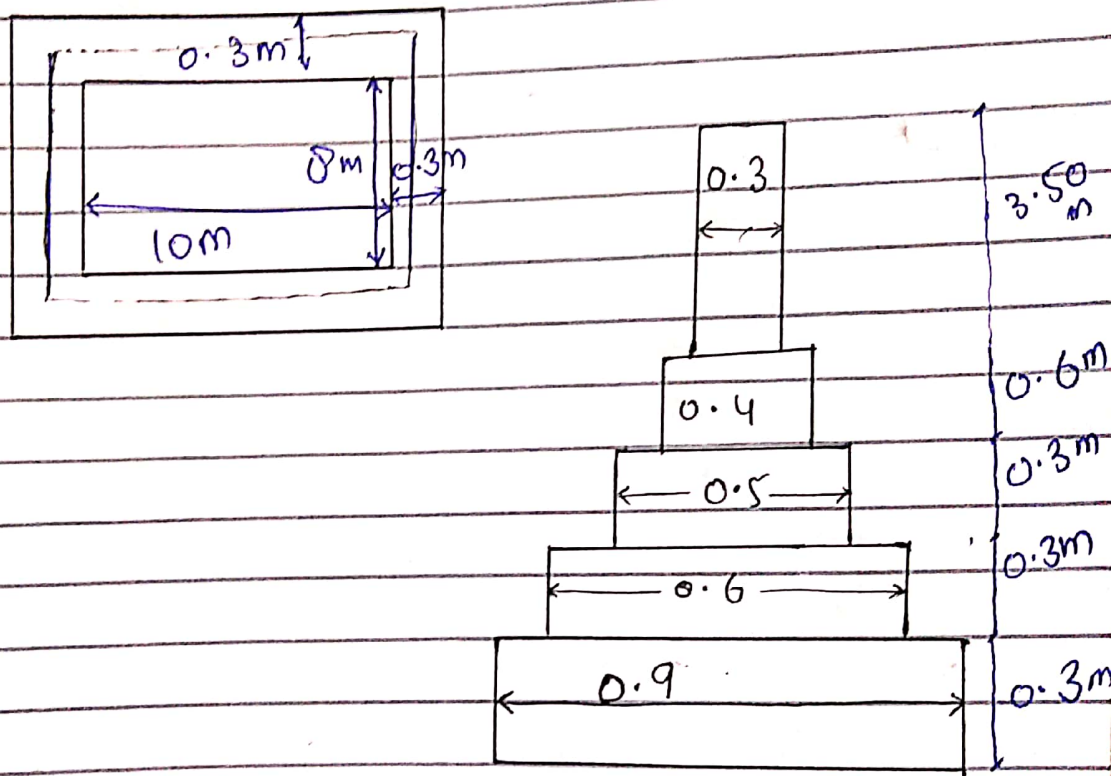 0.3m
8m
0.3m
10m
0.3
3.50
m
0.4
0.6m
0.5
0.3m
0.6
0.3m
0.9
0.3m